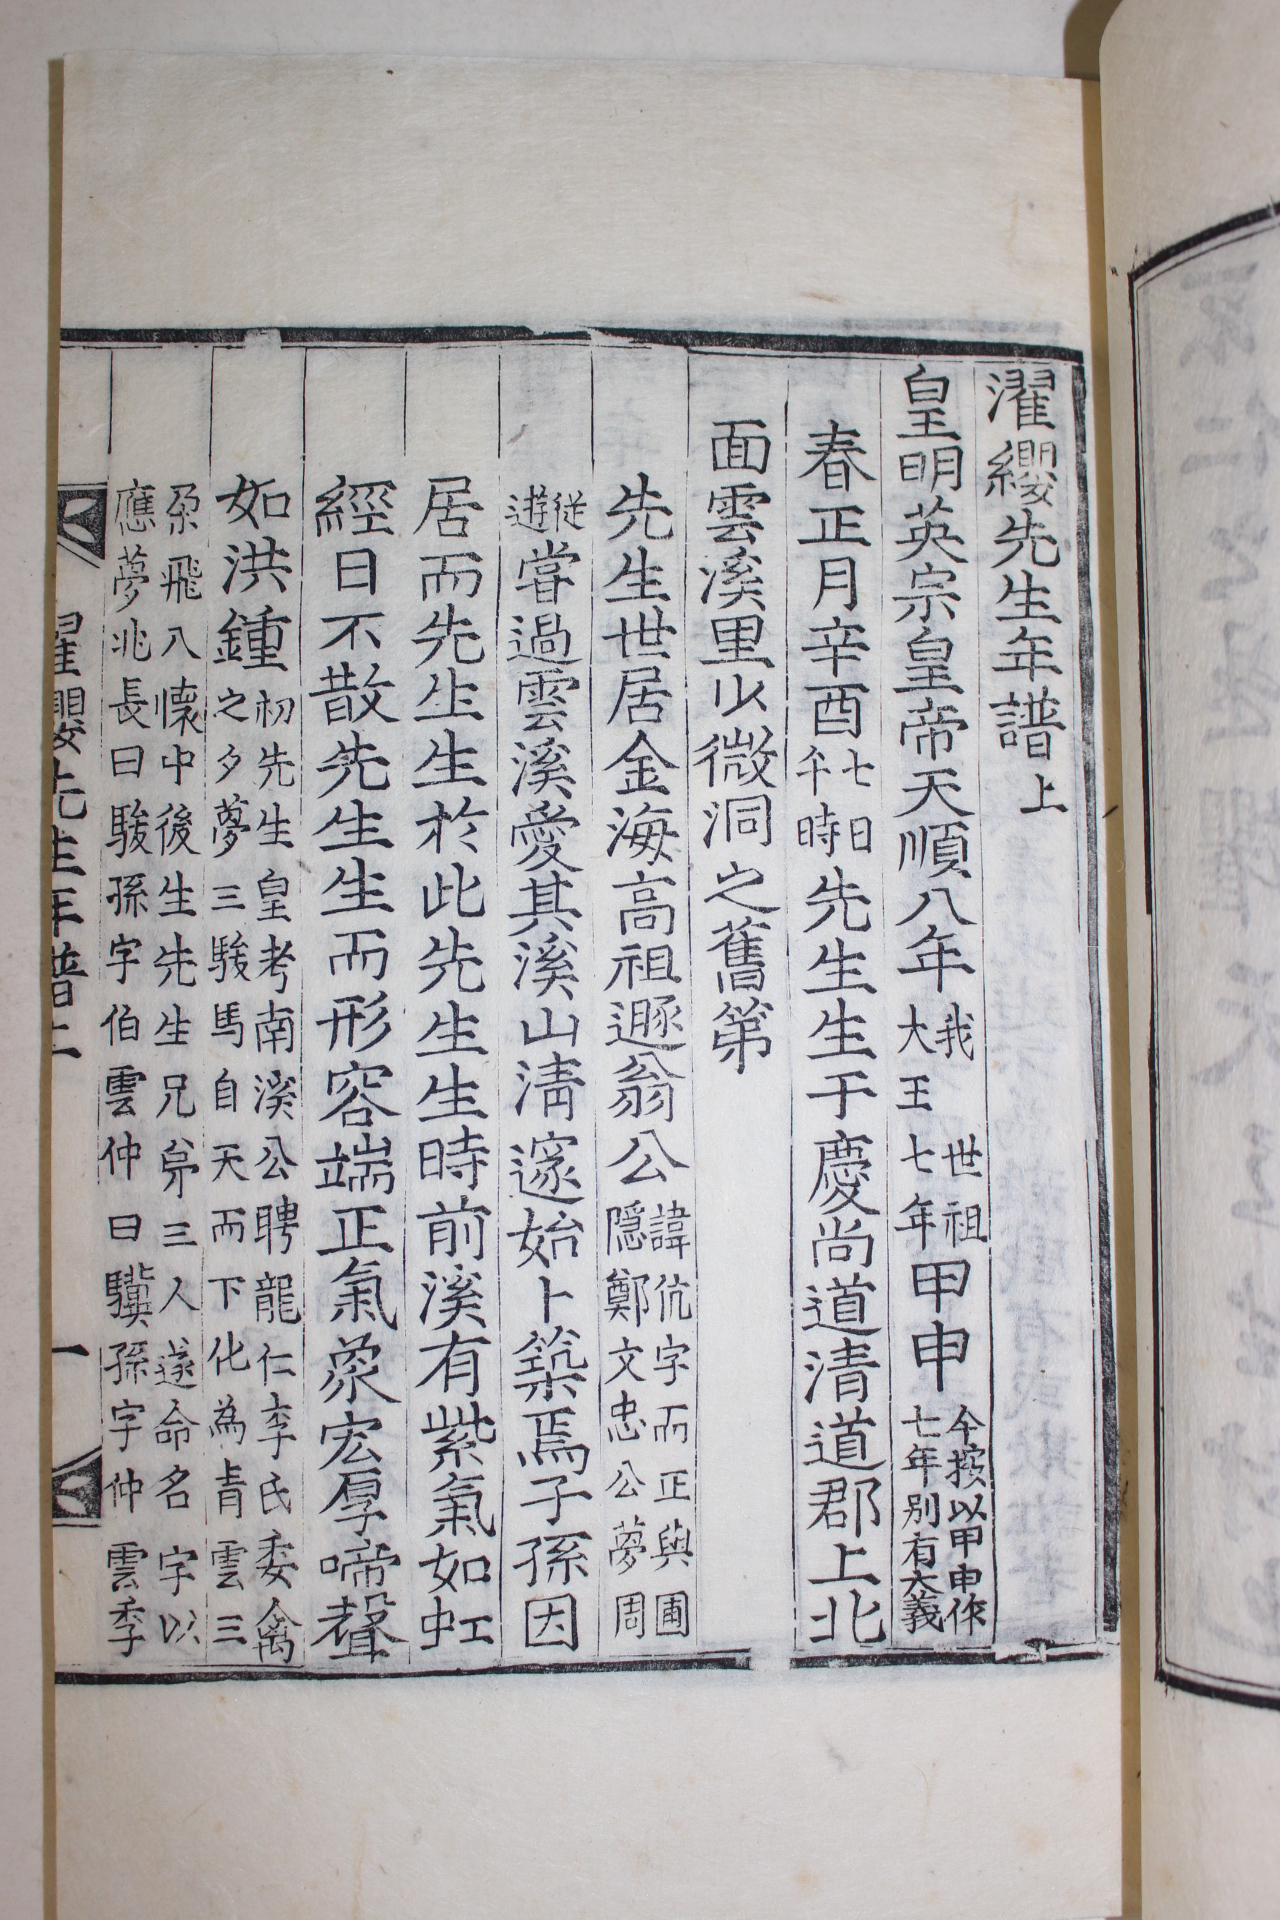 濯纓先生年譜上
皇明英宗皇帝天順八年我世祖大王七年甲申今按以甲申作七年別有大義
春正月辛酉七日午時先生生于慶尚道清道郡上北
面雲溪里少微洞之舊第
先生世居金海高祖遯翁公諱伉字而正與圃隱鄭文忠公夢周
從遊嘗過雲溪愛其溪山淸邃始卜築焉子孫因
居而先生生於此先生生時前溪有紫氣如虹
經日不散先生生而形容端正氣象宏厚啼聲
如洪鍾初先生皇考南溪公聘龍仁李氏委禽之夕夢三駿馬自天而下化為青雲三
朶飛入懷中後生先生兄弟三人遂命名字以應夢兆長曰駿孫字伯雲仲曰驥孫字仲雲季
濯纓先生年譜上 一